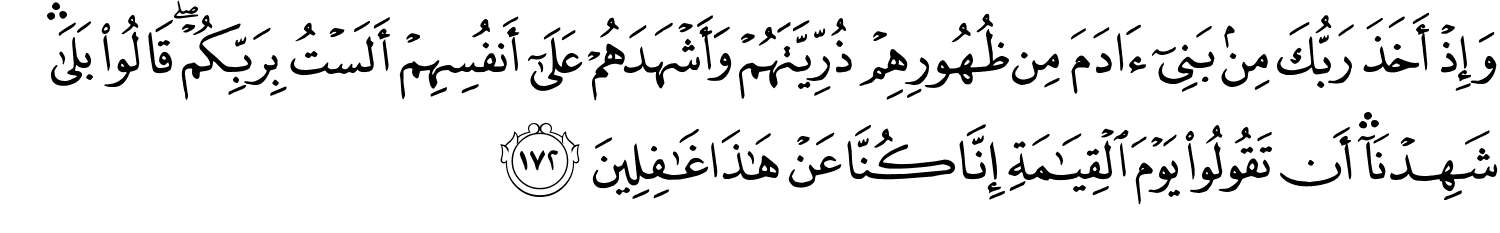 وَإِذۡ أَخَذَ رَبُّكَ مِنۢ بَنِيٓ ءَادَمَ مِن ظُهُورِهِمۡ ذُرِّيَّتَهُمۡ وَأَشۡهَدَهُمۡ عَلَىٰٓ أَنفُسِهِمۡ أَلَسۡتُ بِرَبِّكُمۡۖ قَالُواْ بَلَىٰۛ
شَهِدۡنَآۛ أَن تَقُولُواْ يَوۡمَ ٱلۡقِيَٰمَةِ إِنَّا كُنَّا عَنۡ هَٰذَا غَٰفِلِينَ ١٧٢